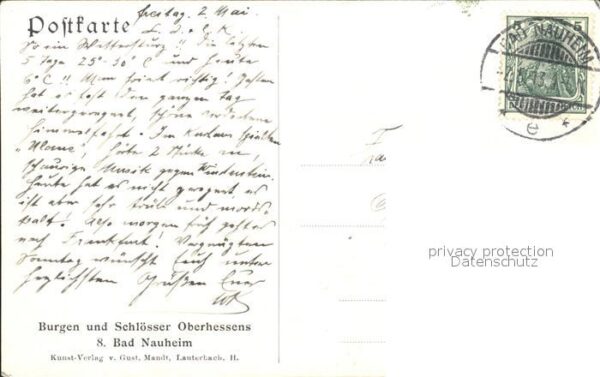 Postkarte
Freitag, 2. Mai.
L. D. e. K.
So ein Wettersturz!! Die letzten
5 Tage 25°-30° C und heute
6° C!! Man friert richtig! Gestern
hat es fast den ganzen Tag
weitergeregnet, schöne
Himmelfahrt. Im Kurhaus spielten
2 Stücke
schaurige Musik gegen
Heute hat es nicht geregnet, es
ist aber sehr trüb und mords-
kalt! Also morgen früh geht es
nach Frankfurt! Vergnügten
Sonntag wünscht Euch unter
herzlichsten Grüßen Euer
Burgen und Schlösser Oberhessens
8. Bad Nauheim
Kunst-Verlag v. Gust. Mandt, Lauterbach, H.
5
BAD NAUHEIM
* e *
privacy protection
Datenschutz